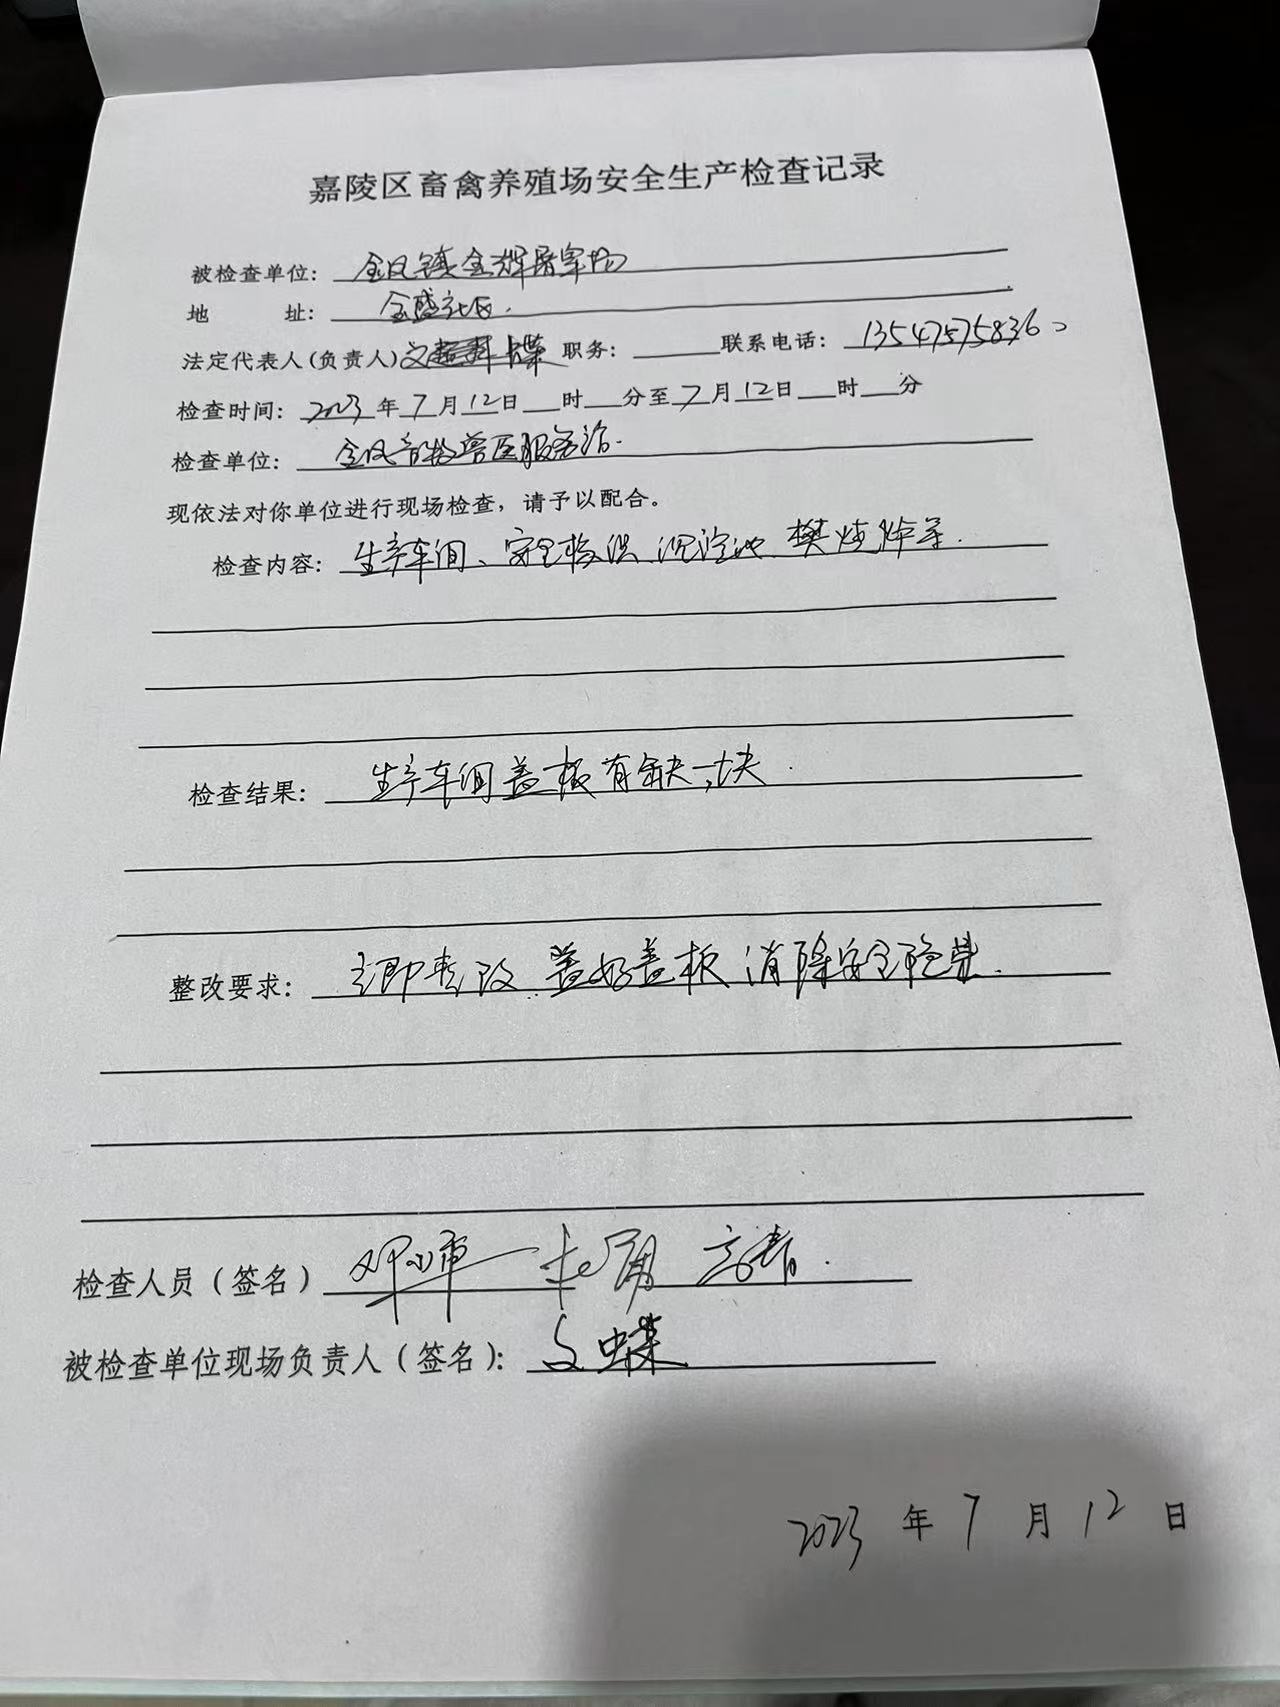 嘉陵区畜禽养殖场安全生产检查记录
被检查单位：金凤镇金辉屠宰场
地 址：金盛社区.
法定代表人(负责人)文 蝶 职务： 联系电话：13547575836
检查时间：2023年7月12日 时 分至7月12日 时 分
检查单位：金凤畜牧兽医服务站.
现依法对你单位进行现场检查，请予以配合。
检查内容：生产车间、安全 沉淀池 等.
检查结果：生产车间盖板有缺一块.
整改要求：立即整改 盖好盖板 消除安全隐患.
检查人员（签名）
被检查单位现场负责人（签名）：文蝶
2023 年 7 月 12 日